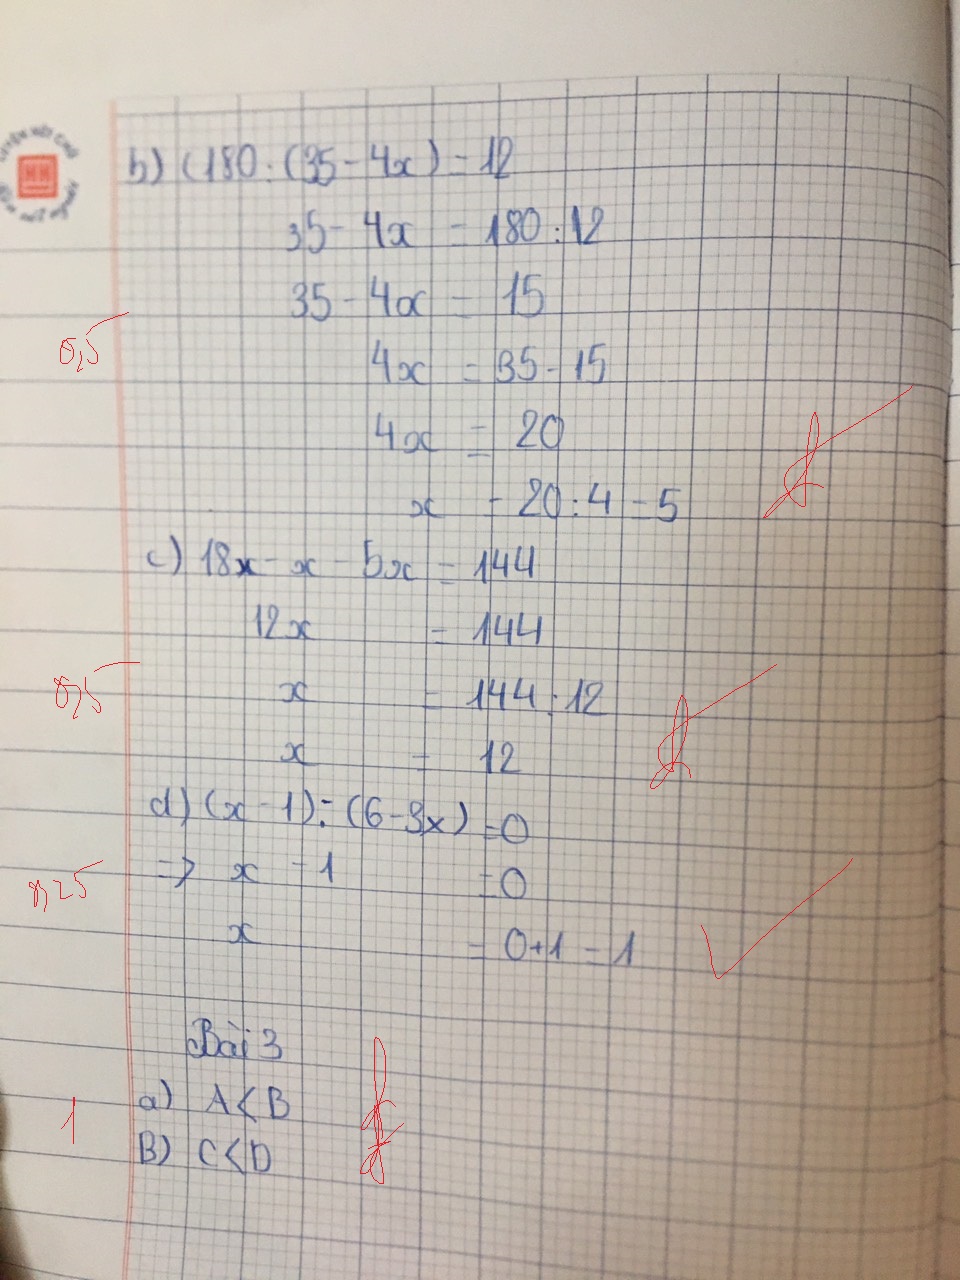 b) (180 : (35 - 4x) = 12
35 - 4x = 180 : 12
35 - 4x = 15
0,5
4x = 35 - 15
4x = 20
x = 20 : 4 = 5
c) 18x - x - 5x = 144
12x = 144
0,5
x = 144 : 12
x = 12
d) (x - 1) : (6 - 3x) = 0
0,25
=> x - 1 = 0
x = 0 + 1 = 1
Bài 3
a) A < B
1
B) C < D